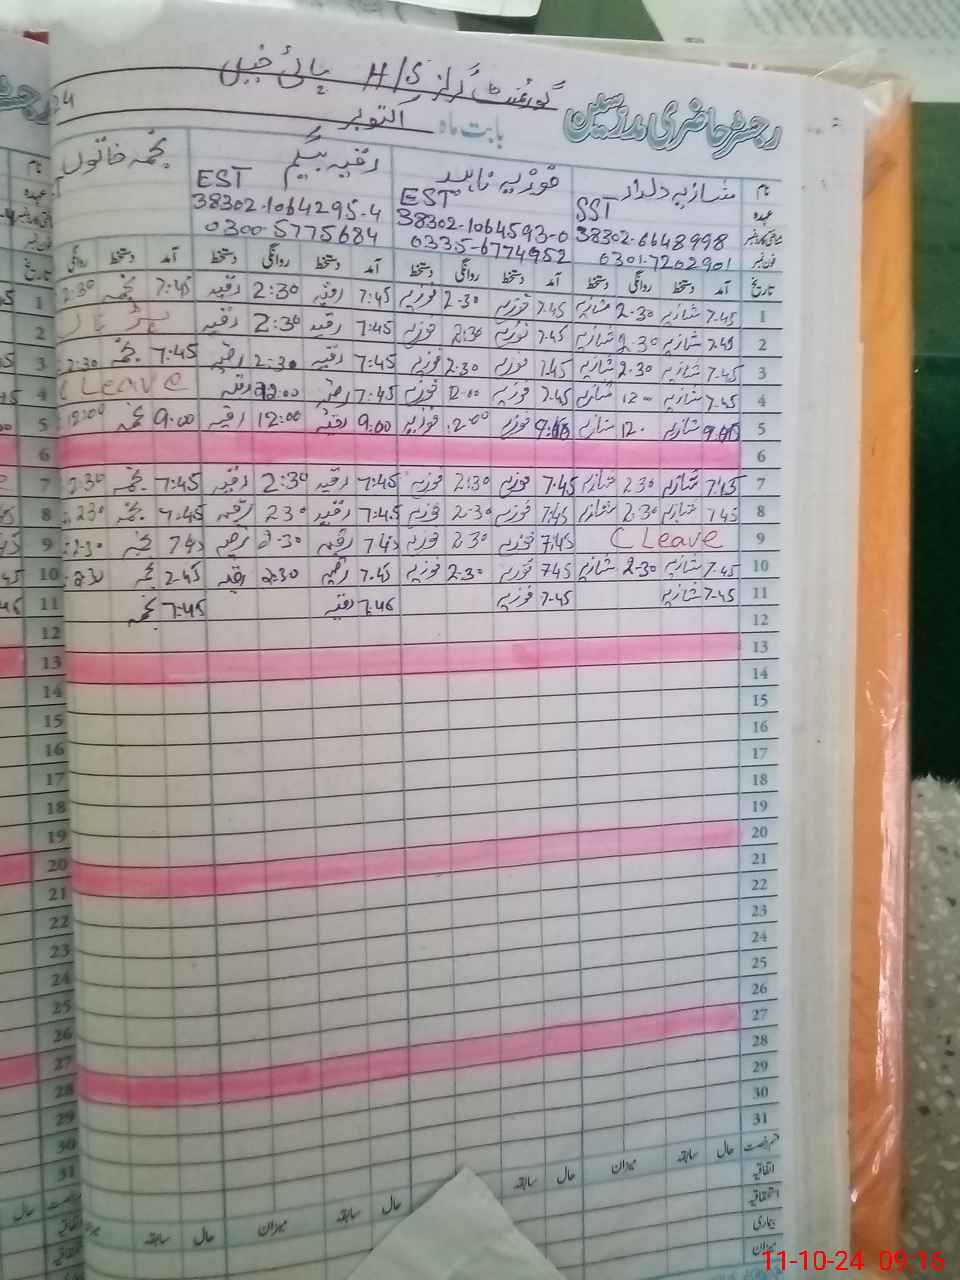 رجسٹر حاضری مدرسین گورنمنٹ گرلز H/S پائی خیل
بابت ماہ اکتوبر 24
نام شازیہ دلدار فوزیہ ناہید رقیہ بیگم نجمہ خاتون
عہدہ SST EST EST
38302-6648998 38302-1064593-0 38302-1064295-4
فون نمبر 0301-7202901 0335-6774952 0300-5775684
تاریخ آمد دستخط روانگی دستخط آمد دستخط روانگی دستخط آمد دستخط روانگی دستخط آمد دستخط روانگی
1 7.45 شازیہ 2.30 شازیہ 7.45 فوزیہ 2.30 فوزیہ 7:45 رقیہ 2:30 رقیہ 7:45 نجمہ 2:30
2 7.45 شازیہ 2.30 شازیہ 7.45 فوزیہ 2.30 فوزیہ 7:45 رقیہ 2:30 رقیہ
3 7.45 شازیہ 2.30 شازیہ 7.45 فوزیہ 2.30 فوزیہ 7:45 رقیہ 2:30 رقیہ 7:45 نجمہ 2:30
4 7.45 شازیہ 12.00 شازیہ 7.45 فوزیہ 12.00 فوزیہ 7:45 رقیہ 12:00 رقیہ C Leave
5 9.00 شازیہ 12. شازیہ 9.00 فوزیہ 12.00 فوزیہ 9:00 رقیہ 12:00 رقیہ 9:00 نجمہ 12:00
6
7 7.45 شازیہ 2.30 شازیہ 7.45 فوزیہ 2:30 فوزیہ 7:45 رقیہ 2:30 رقیہ 7:45 نجمہ 2:30
8 7.45 شازیہ 2.30 شازیہ 7.45 فوزیہ 2.30 فوزیہ 7:45 رقیہ 2:30 رقیہ 7:45 نجمہ 2:30
9 C Leave 7:45 فوزیہ 2.30 فوزیہ 7:45 رقیہ 2:30 رقیہ 7:45 نجمہ 2:30
10 7.45 شازیہ 2.30 شازیہ 7.45 فوزیہ 2.30 فوزیہ 7.45 رقیہ 2:30 رقیہ 2.45 نجمہ 2:30
11 7.45 شازیہ 7.45 فوزیہ 7:46 رقیہ 7:45 نجمہ
12
13
14
15
16
17
18
19
20
21
22
23
24
25
26
27
28
29
30
31
قسم رخصت حال سابقہ میزان حال سابقہ حال سابقہ میزان حال سابقہ
اتفاقیہ
استحقاقیہ
بیماری
میزان
11-10-24 09:16